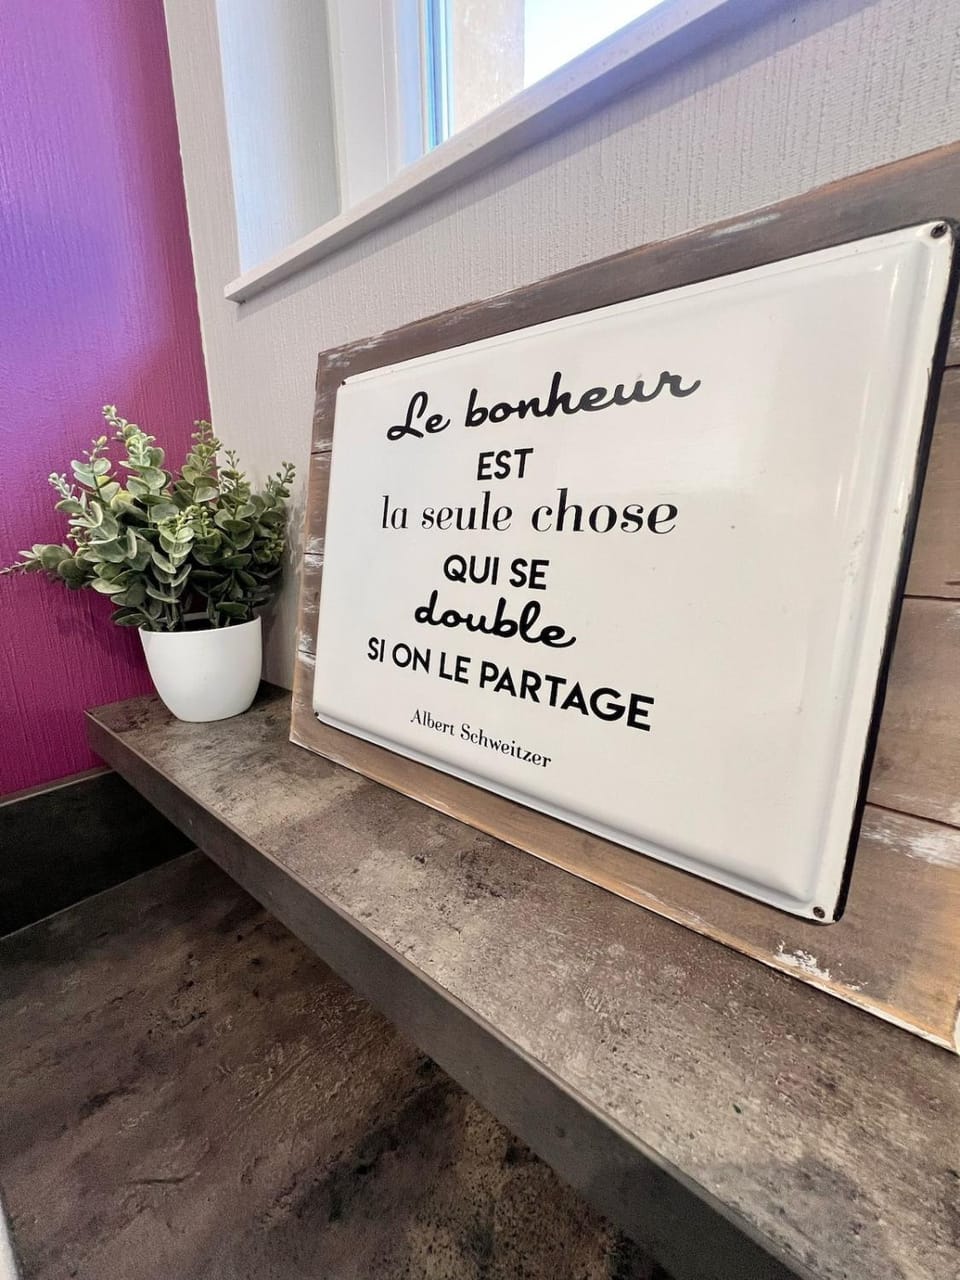 Le bonheur
EST
la seule chose
QUI SE
double
SI ON LE PARTAGE
Albert Schweitzer